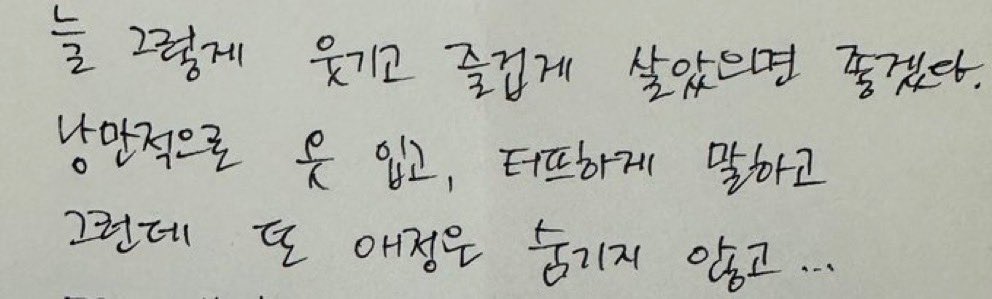 늘 그렇게 웃기고 즐겁게 살았으면 좋겠다.
낭만적으로 옷 입고, 터프하게 말하고
그런데 또 애정은 숨기지 않고...